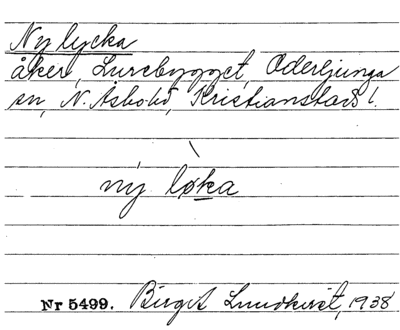 Ny lycka
åker, Lurebygget, Oderljunga
sn, N. Åsbo hd, Kristianstads l.
ny løka
Nr 5499. Birgit Lundkvist, 1938